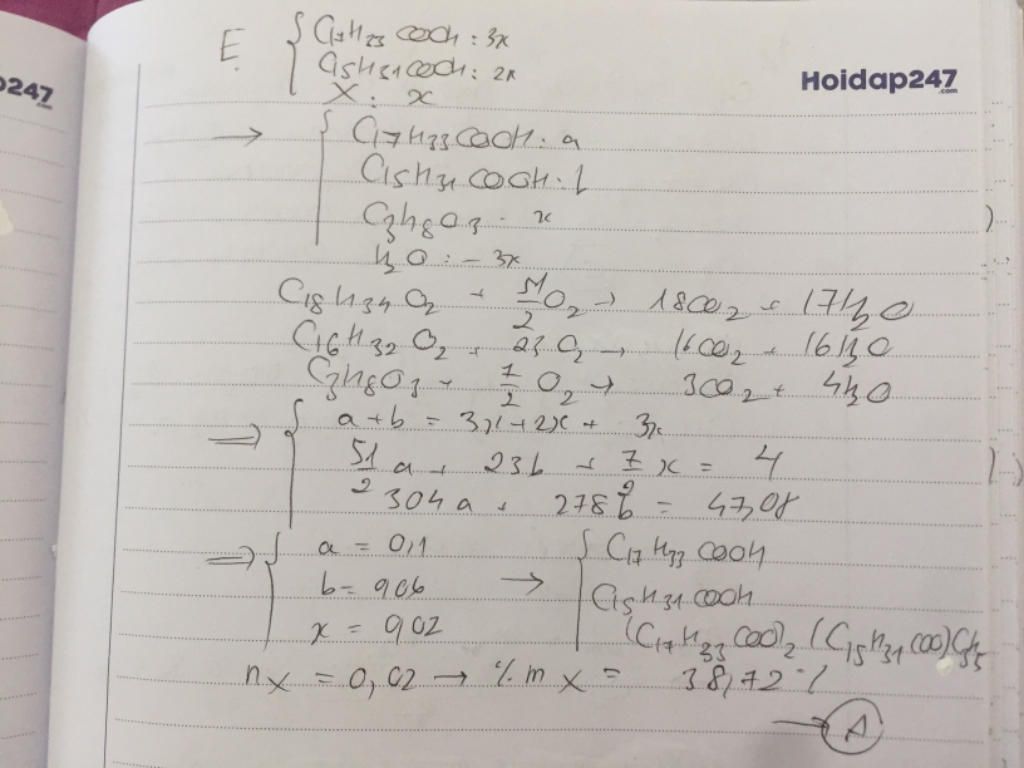 E. { C17H33 COOH : 3x
C15H31COOH : 2x
Hoidap247
.com
247
.com
X : x
→ { C17H33COOH : a
C15H31 COOH : b
C3H8O3 : x
H2O : - 3x
C18H34O2 + 51/2 O2 → 18CO2 + 17H2O
C16H32O2 + 23O2 → 16CO2 + 16H2O
C3H8O3 + 7/2 O2 → 3CO2 + 4H2O
=> { a + b = 3x + 2x + 3x
51/2 a + 23b + 7/2 x = 4
304a + 278b = 47,08
=> { a = 0,1 → { C17H33COOH
b = 0,06 C15H31COOH
x = 0,02 (C17H33COO)2(C15H31COO)C3H5
nX = 0,02 → % mX = 38,72 %
→ A